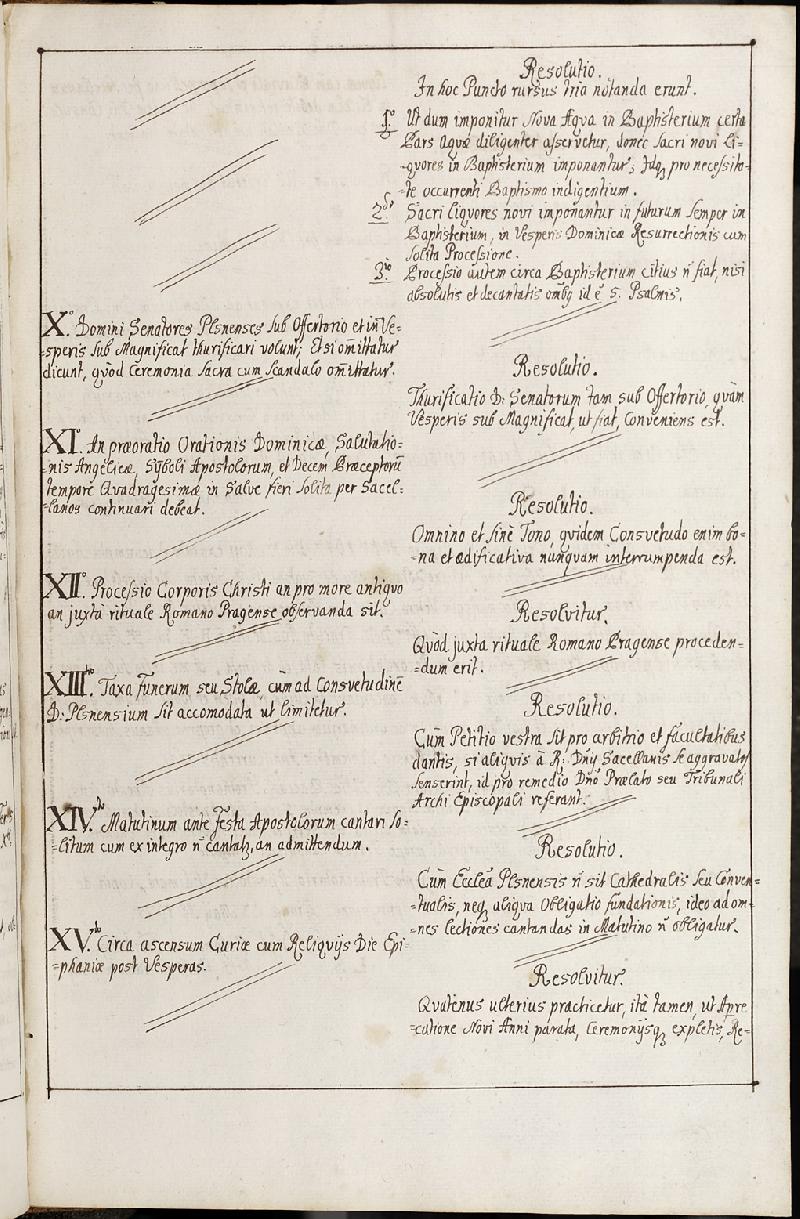 Resolutio.
In hoc Puncto rursus tria notanda erunt.
1º Ut dum imponitur Nova Aqva in Baptisterium certa
Pars Aqvæ diligenter asservetur, donec Sacri novi Li-
-qvores in Baptisterium imponantur; Idq₃ pro necessita-
-te occurrenti Baptismo indigentium.
2dò Sacri Liqvores novi imponantur in futurum semper in
Baptisterium, in Vesperis Dominicæ Resurrectionis cum
solita Processione.
3tiò Processio autem circa Baptisterium citius n̄ fiat, nisi
absolutis et decantatis omb9 id ē 5. Psalmis.
Xº. Domini Senatores Plsnenses sub Offertorio et in Ve-
-speris sub Magnificat thurificari volunt; Et si omittatur
dicunt, qvod Ceremonia Sacra cum Scandalo omittatur.
Resolutio.
Thurificatio D: Senatorum tam sub Offertorio, qvàm
Vesperis sub Magnificat, ut fiat, Conveniens est.
XIº. An præoratio Orationis Dominicæ, Salutatio-
-nis Angelicæ, Sȳboli Apostolorum, et Decem Præceptorū
tempore Qvadragesimæ in Salve fieri solita per Sacel-
-lanos continuari debeat.
Resolutio.
Omnino et sine Tono, qvidem Consvetudo enim bo-
-na et ædificativa nunqvam interrumpenda est.
XIIº. Processio Corporis Christi an pro more antiqvo
an juxta rituale Romano Pragense observanda sit.
Resolvitur.
Qvòd juxta rituale Romano Pragense proceden-
-dum erit.
XIIItiò. Taxa funerum seu Stolæ, cùm ad Consvetudinē
D: Plsnensium sit accomodata ut limitetur.
Resolutio.
Cùm Petitio vestra sit pro arbitrio et facultatibus
dantis, si aliqvis à R: Dn̄ij Sacellanis se aggravatos
senserint, id pro remedio Dn̄o Prælato seu Tribunali
Archi Episcopali referant.
XIVtò. Matutinum ante Festa Apostolorum cantari so-
-litum cum ex integro n̄ cantat₃, an admittendum.
Resolutio.
Cùm Ecclēa Plsnensis n̄ sit Cathedralis seu Conven-
-tualis, neq₃ aliqva Obligatio fundationis, ideo ad om-
-nes lectiones cantandas in Matutino n̄ obligatur.
XVtò. Circa ascensum Curiæ cum Reliqvijs Die Epi-
-phaniæ post Vesperas.
Resolvitur.
Qvatenus ulterius practicetur, ità tamen, ut Apre
-catione Novi Anni parata, Ceremonijsq₃ expletis, Re-